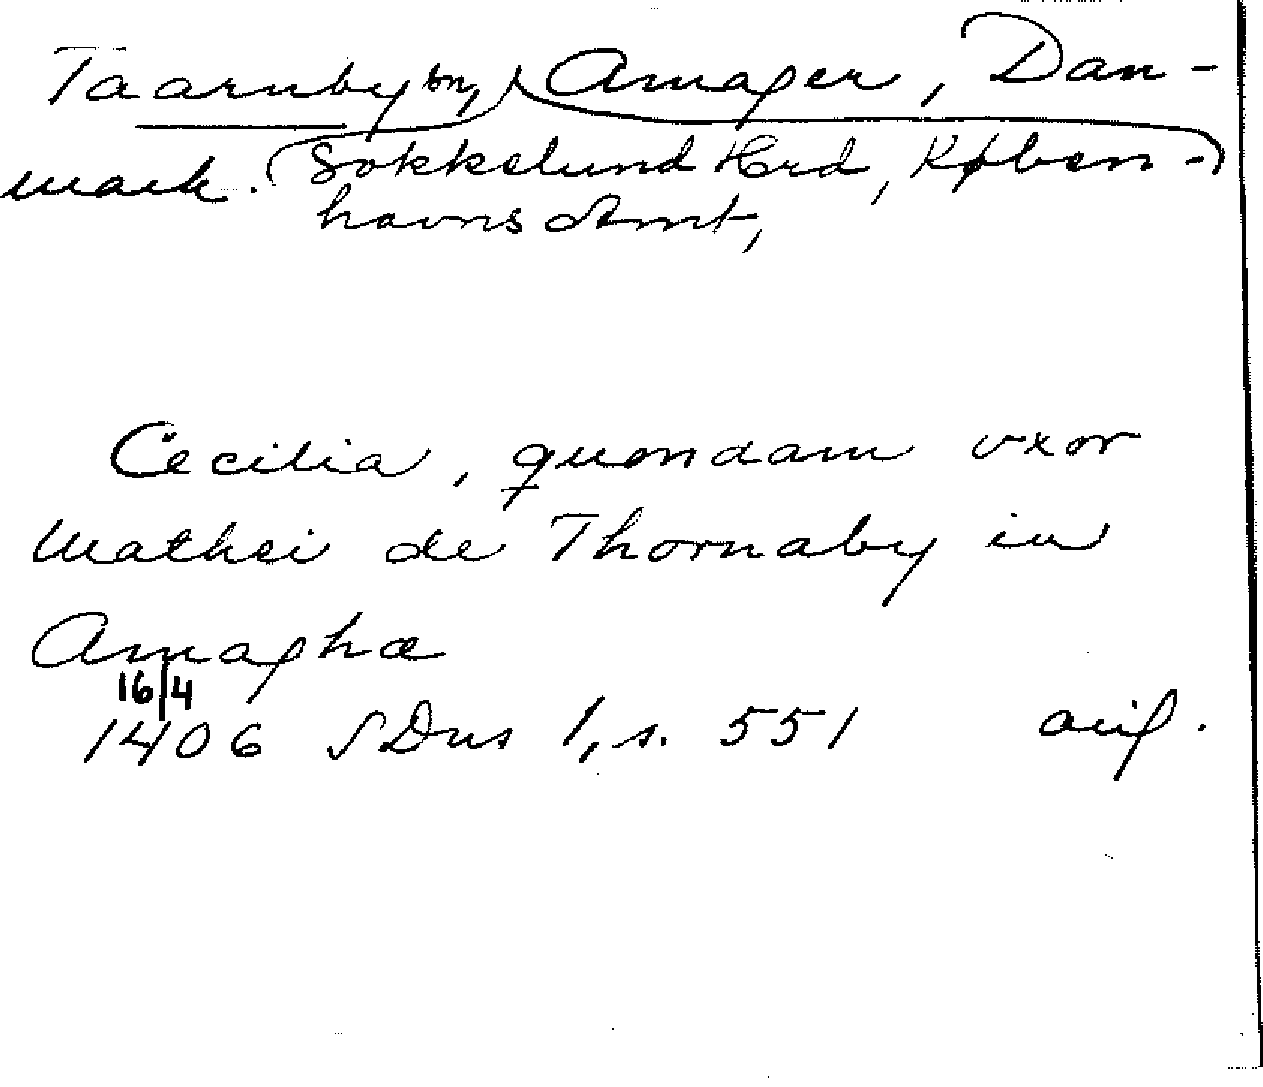 Taarnby sn, Amager, Dan-
mark. (Sokkelund Hrd, Køben-)
havns Amt,
Cecilia, quondam vxor
Mathei de Thornaby in
Amaghæ
16/4
1406 SDns 1, s. 551 avif.